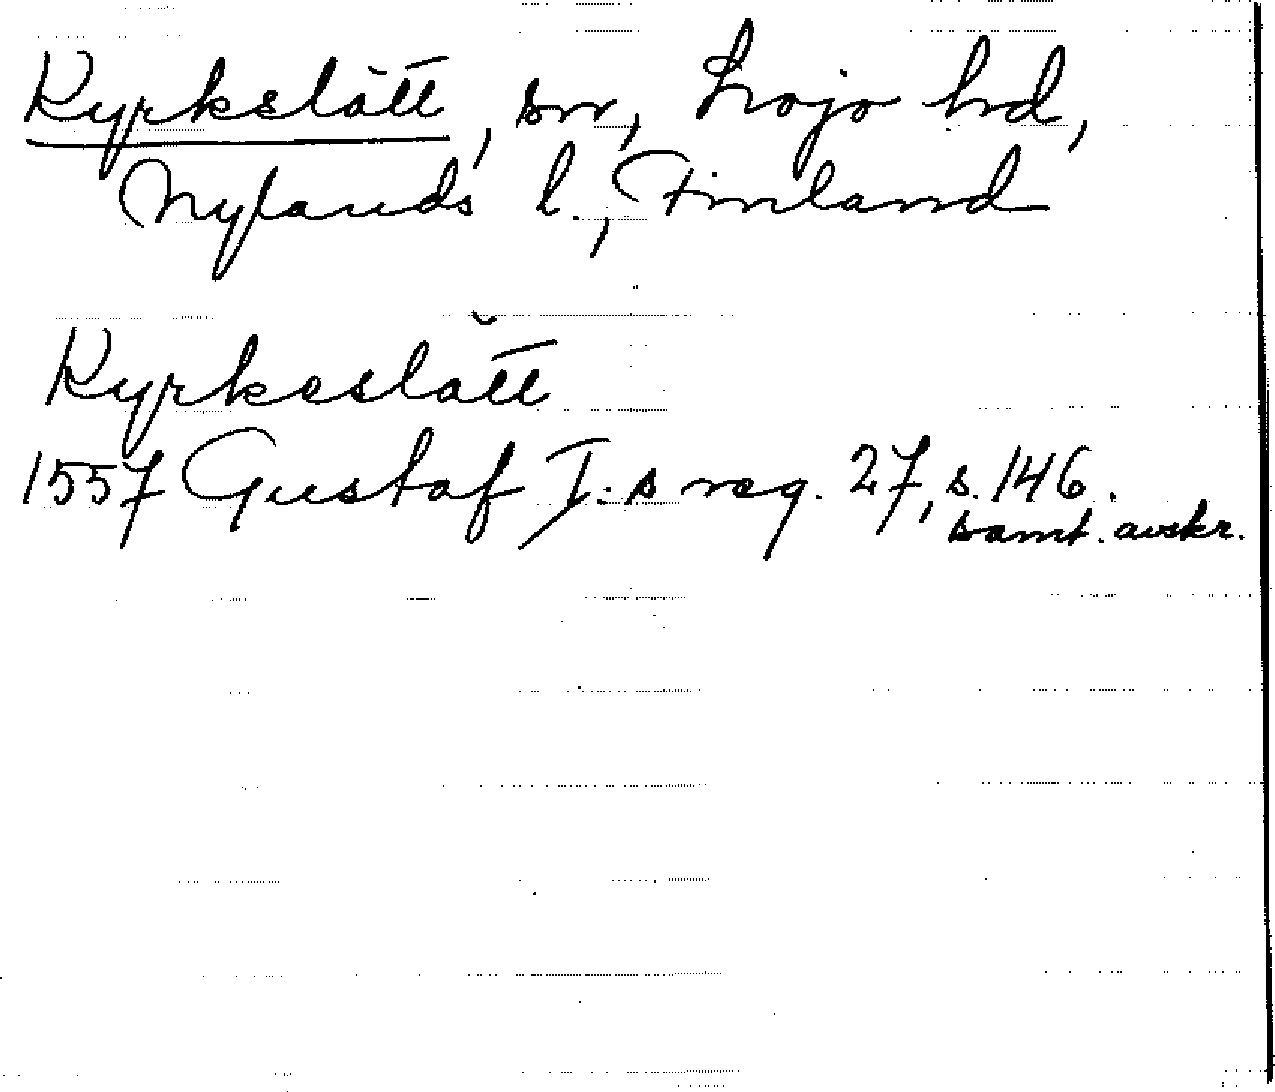 Kyrkslätt, sn, Lojo hd,
Nylands l., Finland
Kyrkeslätt
1557 Gustaf I:s reg. 27, s. 146.
samt. avskr.